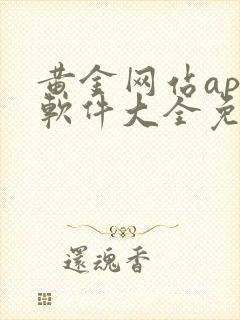 黄金网站ap
軟件大全免
還魂香